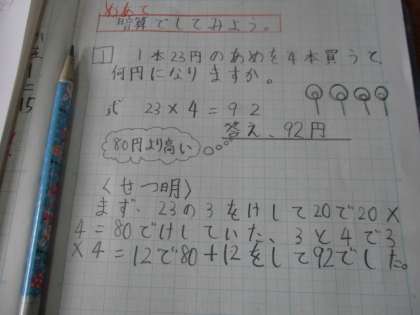 めあて
暗算でしてみよう。
1 1本23円のあめを4本買うて
何円になりますか。
式 23×4=92
答え、92円
80円より高い
〈せつ明〉
まず、23の3をけして20で20×
4=80でけしていた、3と4で3
×4=12で80+12をして92でした。
=
15